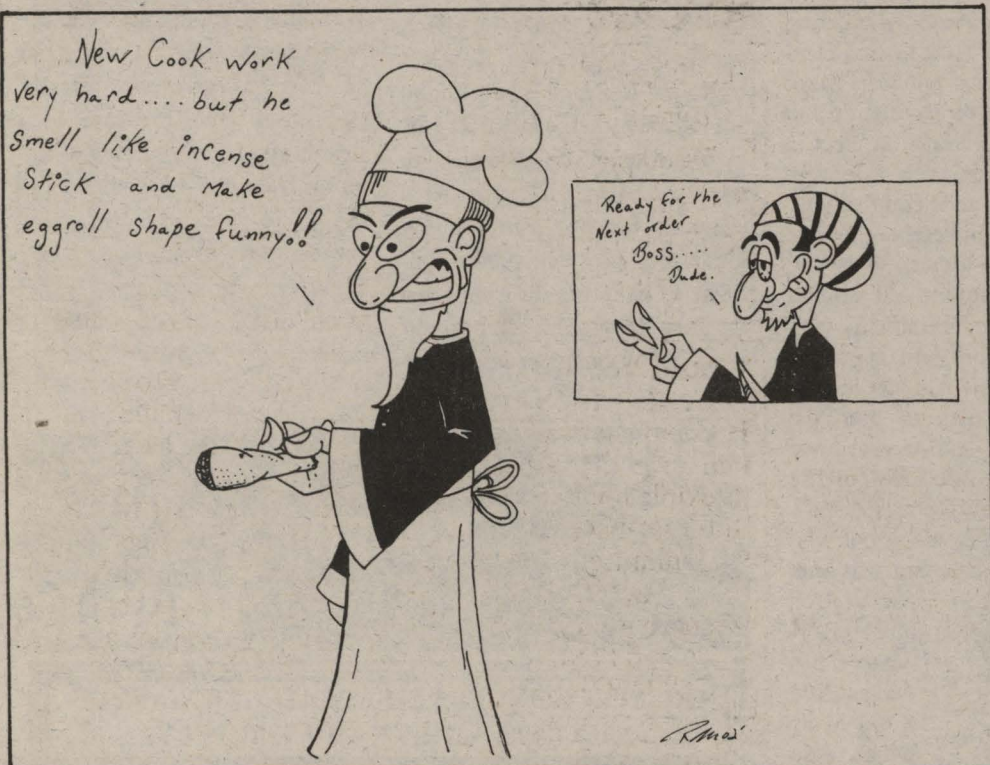 New Cook work
very hard.... but he
Smell like incense
Stick and Make
eggroll Shape funny!!
Ready for the
Next order
Boss.....
Dude.